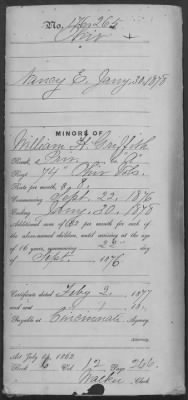 No. 176265
Ohio
Nancy E. Jany. 30, 1878
MINORS OF
William H. Griffith
Rank, Priv. Co. G
Regt. 74" Ohio Vols.
Rate per month, $ 8.
Commencing Sept. 22, 1876
Ending Jany. 30, 1878
Additional sum of $2 per month for each of
the above-named children, until arriving at the age
of 16 years, commencing 22 day
of Sept. 1876
Certificate dated Feby 2, 1877
and sent 187 .
Payable at Cincinnati Agency.
Act July 14, 1862
Book Vol. 12 Page 266.
Clerk